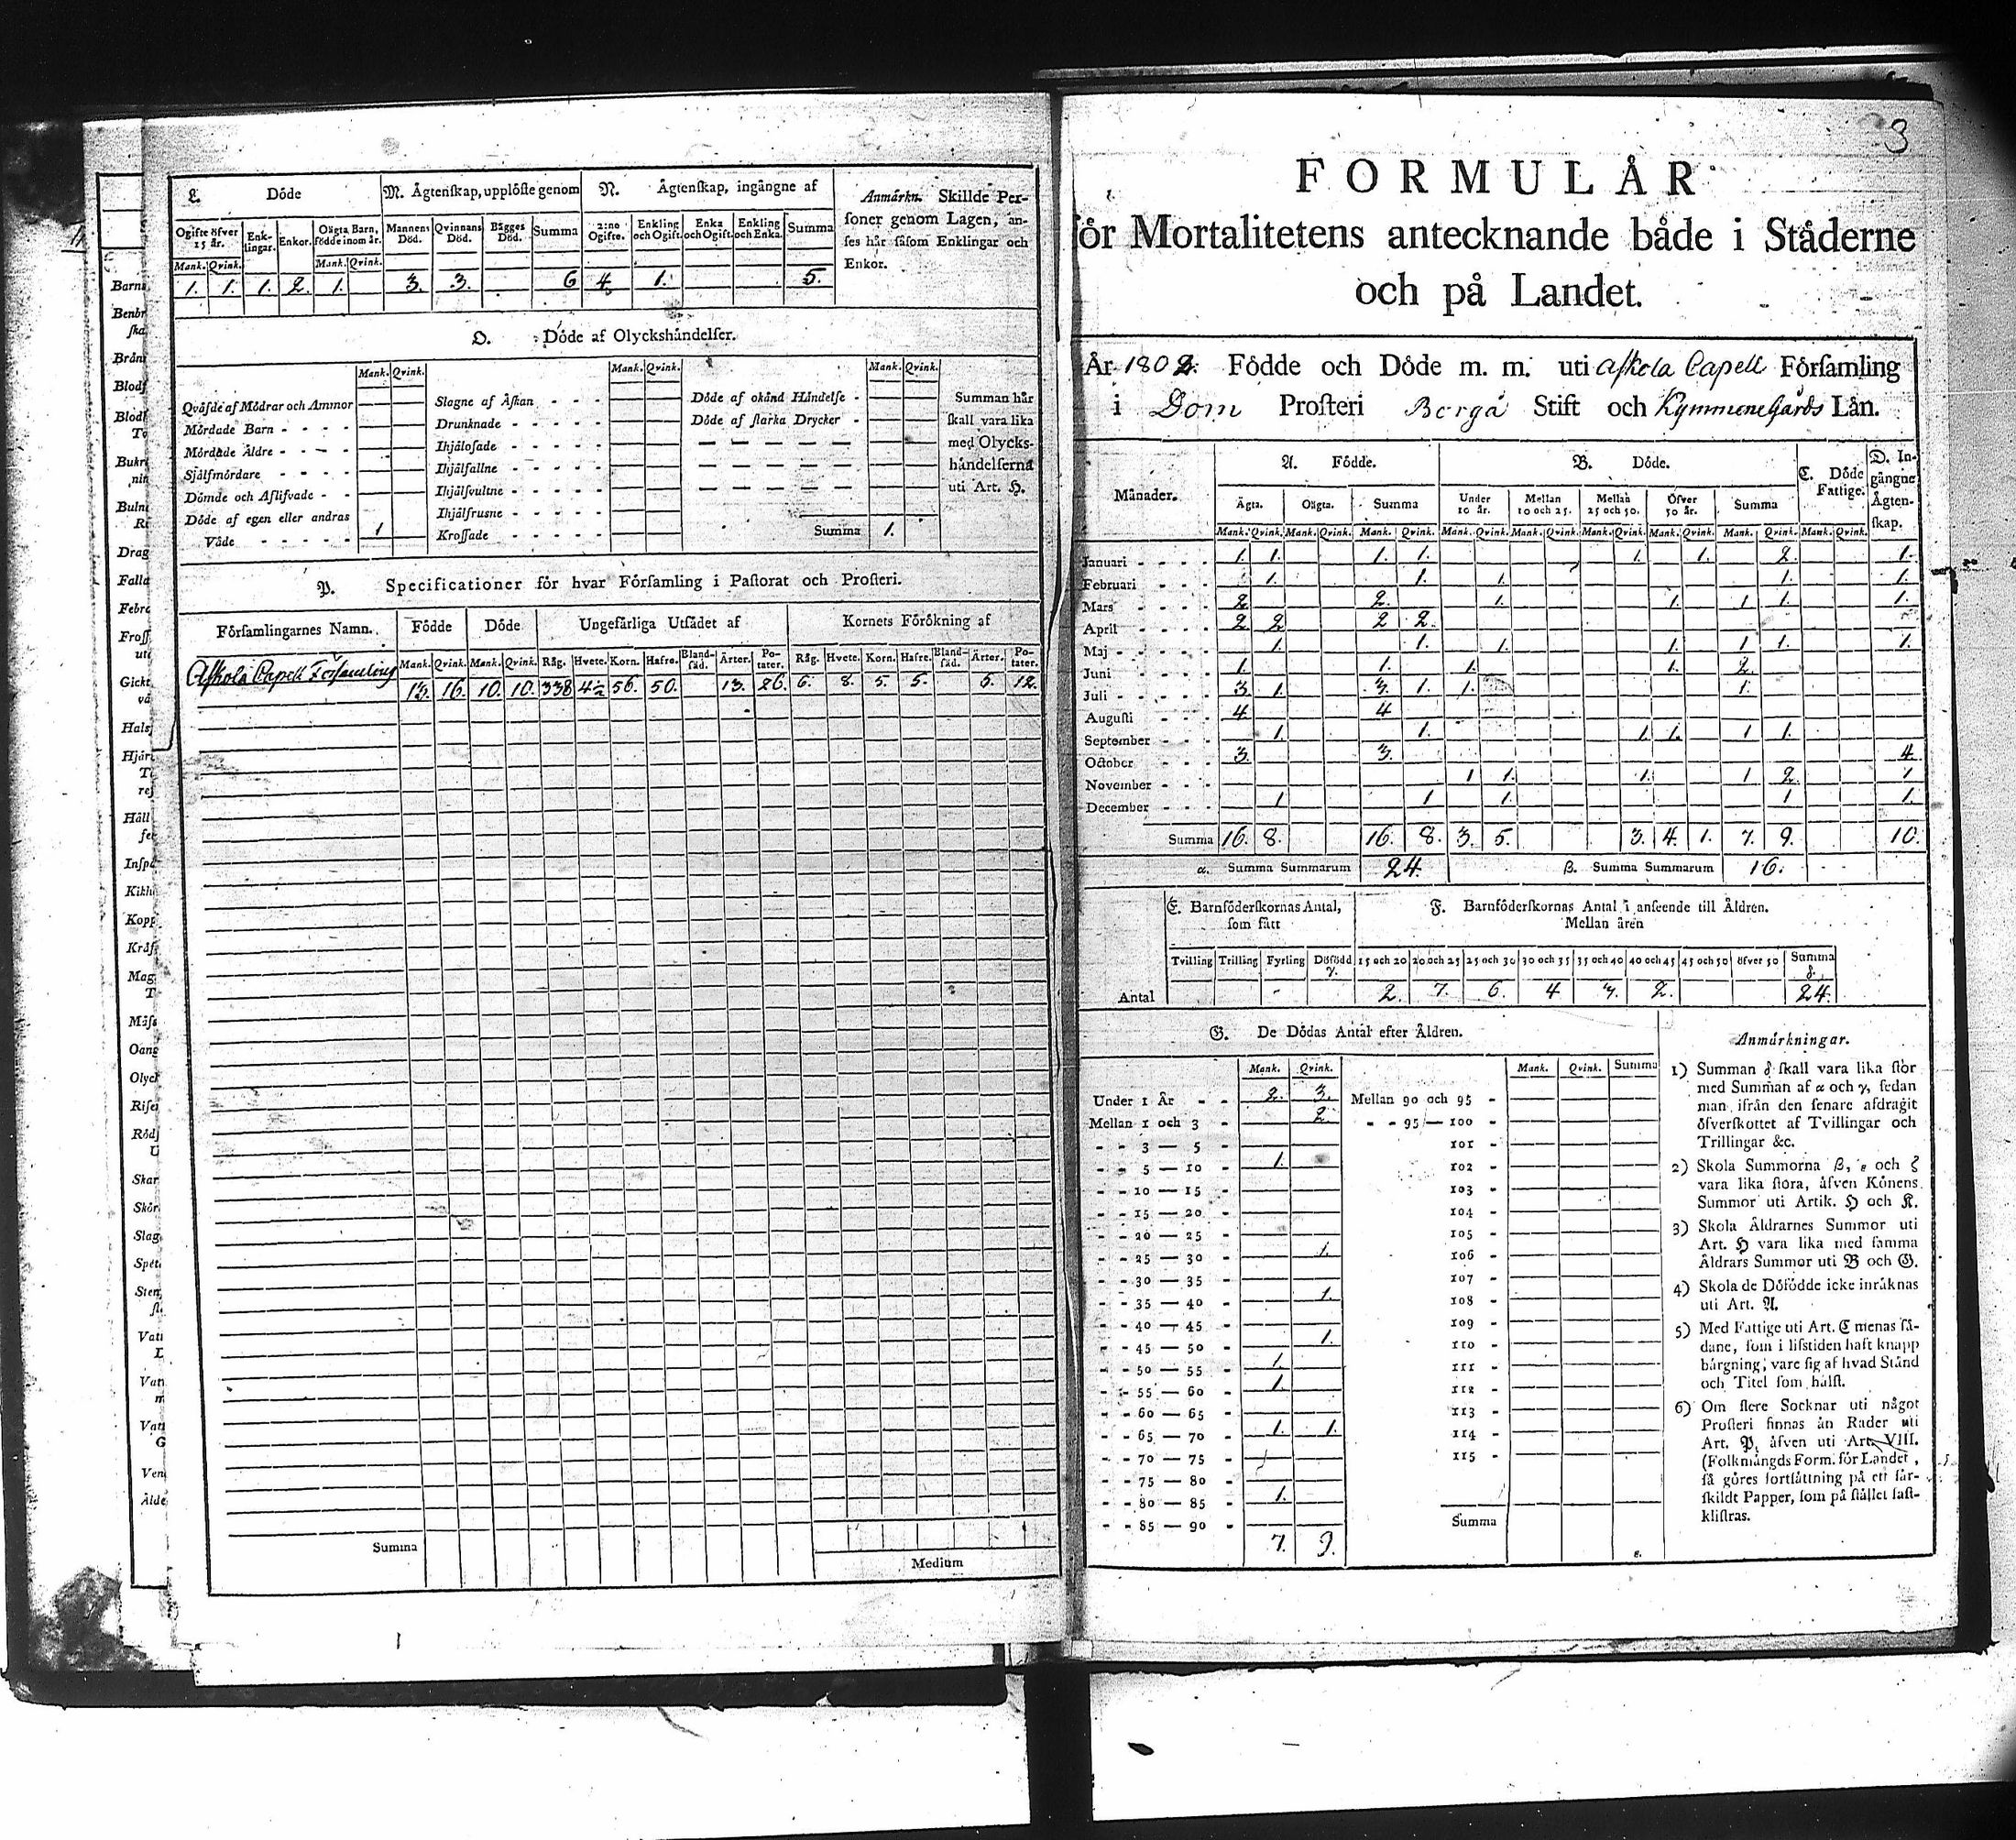 L. Döde
Ogifte öfver 15 år. Enklingar. Enkor. Oägta Barn, födde inom år.
Mank. Qvink. Mank. Qvink.
1. 1. 1. 2. 1.
M. Ågtenskap, upplöste genom
Mannens Död. Qvinnans Död. Bägges Död. Summa
3. 3. 6
N. Ågtenskap, ingångne af
2:ne Ogifte. Enkling och Ogift. Enka och Ogift. Enkling och Enka. Summa
4. 1. 5.
Anmärkn. Skillde Personer
genom Lagen, anses
här såsom Enklingar och
Enkor.
O. Döde af Olyckshändelser.
Mank. Qvink. Mank. Qvink. Mank. Qvink.
Qväfde af Mödrar och Ammor
Mördade Barn - - - -
Mördade Äldre - - - -
Själfmördare - - - -
Dömde och Aflifvade - -
Döde af egen eller andras
Våde - - - - - 1
Slagne af Åskan - - -
Drunknade - - - - -
Ihjälosade - - - - -
Ihjälfallne - - - - -
Ihjälsvultne - - - - -
Ihjälfrusne - - - - -
Krossade - - - - -
Döde af okänd Händelse -
Döde af starka Drycker -
Summa 1.
Summan här
skall vara lika
med Olyckshändelserna
uti Art. H.
P. Specificationer för hvar Församling i Pastorat och Prosteri.
Församlingarnes Namn. Födde Döde Ungefärliga Utsädet af Kornets Förökning af
Mank. Qvink. Mank. Qvink. Råg. Hvete. Korn. Hafre. Blandsäd. Ärter. Potater. Råg. Hvete. Korn. Hafre. Blandsäd. Ärter. Potater.
Askola Capell Församling 13. 16. 10. 10. 338 4½ 56. 50. 13. 26. 6. 8. 5. 5. 5. 12.
Summa
Medium
3
FORMULÅR
för Mortalitetens antecknande både i Ståderne
och på Landet.
År 1802. Födde och Döde m. m. uti Askola Capell Församling
i Dom Prosteri Borgå Stift och Kymmenegårds Län.
Månader. A. Födde. B. Döde. C. Döde Fattige. D. Ingångne Ågtenskap.
Ägta. Oägta. Summa Under 10 år. Mellan 10 och 25. Mellan 25 och 50. Öfver 50 år. Summa
Mank. Qvink. Mank. Qvink. Mank. Qvink. Mank. Qvink. Mank. Qvink. Mank. Qvink. Mank. Qvink. Mank. Qvink. Mank. Qvink.
Januari - - - 1. 1. 1. 1. 1. 1. 2. 1.
Februari - - - 1. 1. 1. 1. 1.
Mars - - - 2. 2. 1. 1. 1 1. 1.
April - - - 2 2 2 2.
Maj - - - 1. 1. 1. 1. 1 1. 1.
Juni - - - 1. 1. 1. 1. 2.
Juli - - - 3. 1. 3. 1. 1. 1.
Augusti - - - 4 4
September - - - 1. 1. 1. 1. 1 1.
October - - - 3. 3. 4.
November - - - 1 1. 1. 1 2. 1
December - - - 1 1 1. 1 1.
Summa 16. 8. 16. 8. 3. 5. 3. 4. 1. 7. 9. 10.
α. Summa Summarum 24. β. Summa Summarum 16.
E. Barnföderskornas Antal, som fått
Tvilling Trilling Fyrling Dödfödd γ.
F. Barnföderskornas Antal i anseende till Åldren.
Mellan åren
15 och 20 20 och 25 25 och 30 30 och 35 35 och 40 40 och 45 45 och 50 öfver 50 Summa δ.
Antal 2. 7. 6. 4 3. 2. 24.
G. De Dödas Antal efter Åldren.
Mank. Qvink. Mank. Qvink. Summa
Under 1 År - - 2. 3.
Mellan 1 och 3 - 2
- - 3 — 5 -
- - 5 — 10 - 1.
- - 10 — 15 -
- - 15 — 20 -
- - 20 — 25 -
- - 25 — 30 - 1.
- - 30 — 35 -
- - 35 — 40 - 1.
- - 40 — 45 -
- - 45 — 50 - 1.
- - 50 — 55 - 1.
- - 55 — 60 - 1.
- - 60 — 65 -
- - 65 — 70 - 1. 1.
- - 70 — 75 -
- - 75 — 80 -
- - 80 — 85 - 1.
- - 85 — 90 -
7. 9.
Mellan 90 och 95 -
- - 95 — 100 -
101 -
102 -
103 -
104 -
105 -
106 -
107 -
108 -
109 -
110 -
111 -
112 -
113 -
114 -
115 -
Summa
ε.
Anmärkningar.
1) Summan δ skall vara lika stor
med Summan af α och γ, sedan
man ifrån den senare afdragit
öfverskottet af Tvillingar och
Trillingar &c.
2) Skola Summorna β, ε och ζ
vara lika stora, äfven Könens
Summor uti Artik. H och K.
3) Skola Äldrarnes Summor uti
Art. H vara lika med samma
Äldrars Summor uti B och G.
4) Skola de Dödfödde icke inräknas
uti Art. A.
5) Med Fattige uti Art. C menas sådane,
som i lifstiden haft knapp
bärgning, vare sig af hvad Stånd
och Titel som hälst.
6) Om flere Socknar uti något
Prosteri finnas än Rader uti
Art. P, äfven uti Art. VIII.
(Folkmängds Form. för Landet,
så göres fortsättning på ett särskildt
Papper, som på stället fastklistras.